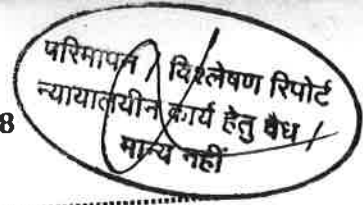 परिमापन / विश्लेषण रिपोर्ट
न्यायालयीन कार्य हेतु वैध /
मान्य नहीं
8